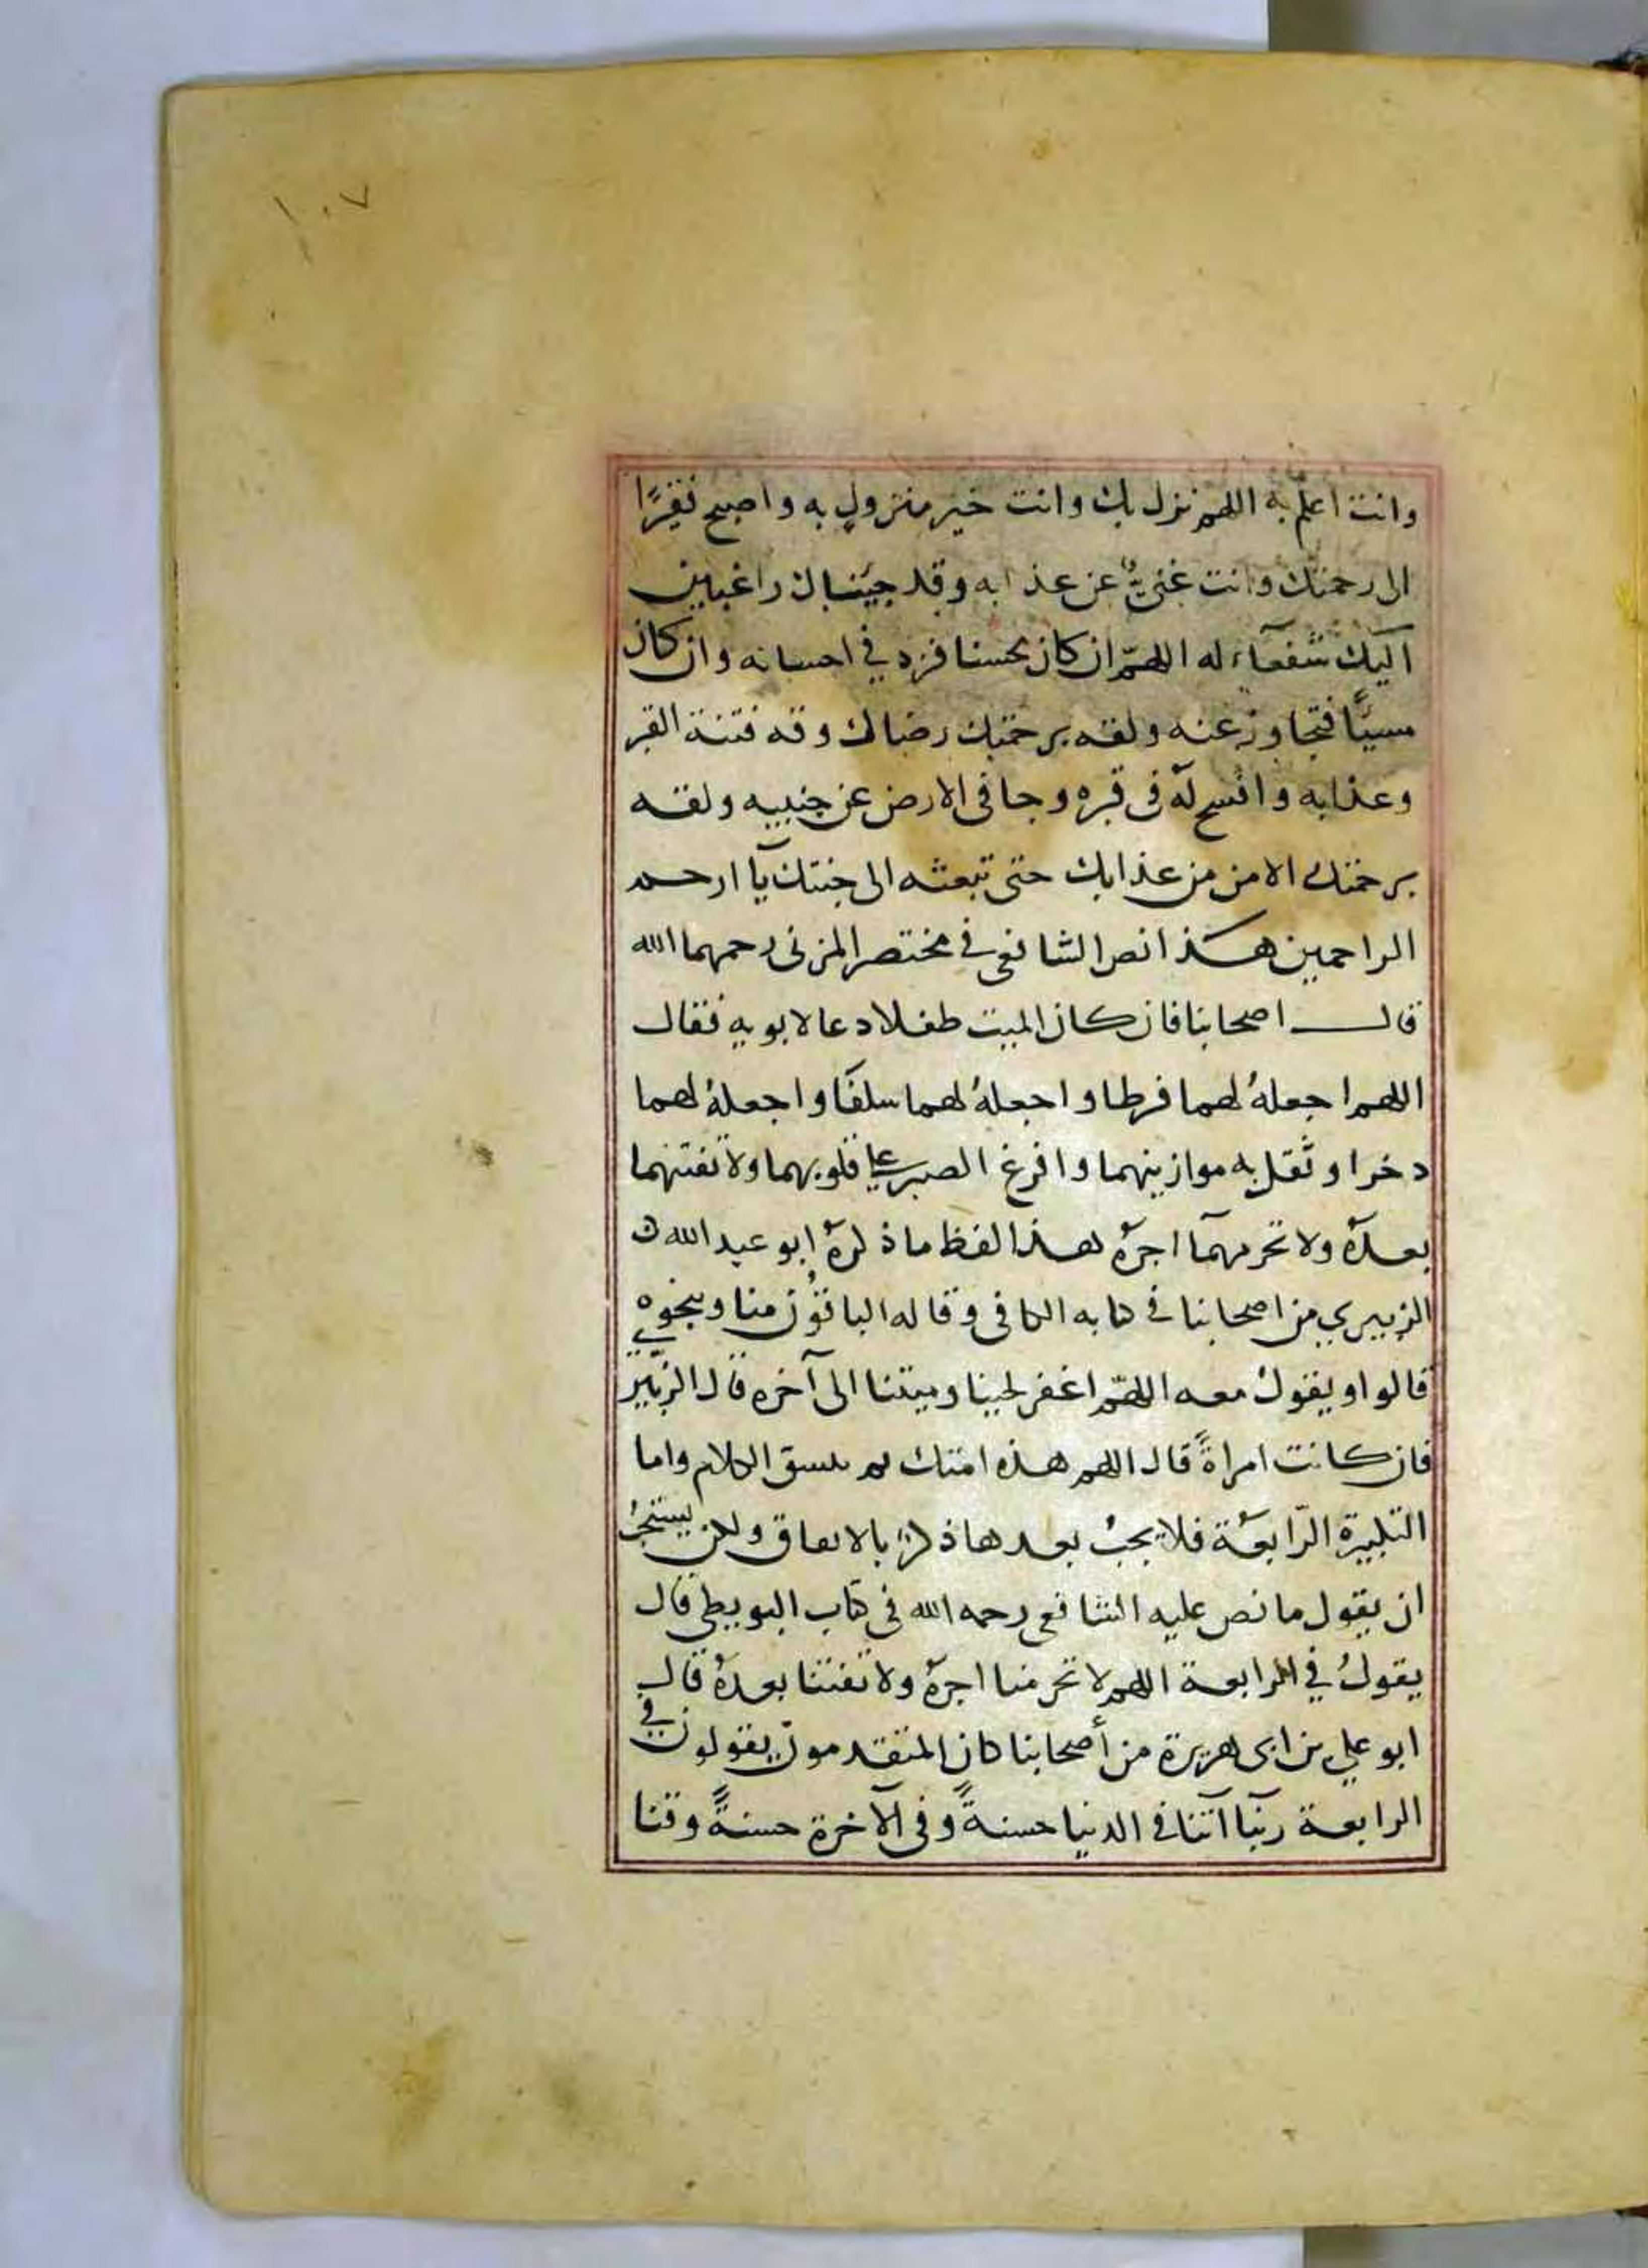 ١٠٧
وانت اعلم به اللهم نزل بك وانت خير منزول به واصبح فقيرًا
الى رحمتك وانت غنيٌّ عن عذابه وقد جيناك راغبين
اليك شفعآء له اللهمّ ان كان محسنا فزد في احسانه وان كان
مسيًّا فتجاوز عنه ولقه برحمتك رضاك وقه فتنة القبر
وعذابه وافسح له فى قبره وجافى الارض عن جنبيه ولقه
برحمتك الامن من عذابك حتى تبعثه الى جنتك يآ ارحم
الراحمين هذا نص الشافعى فى مختصر المزنى رحمهما الله
قال اصحابنا فان كان الميت طفلا دعا لابويه فقال
اللهم اجعلهُ لهما فرطا واجعلهُ لهما سلفًا واجعلهُ لهما
دخرا وثقل به موازينهما وافرغ الصبر على قلوبهما ولا تفتنهما
بعدهُ ولا تحرمهمآ اجرهُ هذا لفظ ما ذكرهُ ابو عبد الله
الزبيري من اصحابنا في كتابه الكافى وقاله الباقون منا وبنحوه
قالوا ويقول معه اللهمّ اغفر لحينا وميتنا الى آخره قال الزبيري
فان كانت امراةً قال اللهم هذه امتك ثم ينسق الكلام واما
التكبيرة الرّابعة فلا يجبُ بعدها ذكر بالاتفاق ولكن يستحبُ
ان يقول ما نص عليه الشافعى رحمه الله في كتاب البويطي قال
يقولُ في الرابعة اللهم لا تحرمنا اجرهُ ولا تفتنا بعدهُ قال
ابو علي بن ابى هريرة من أصحابنا كان المتقدمون يقولون في
الرابعة ربنآ اتنا في الدنيا حسنةً وفى الآخرة حسنةً وقنا